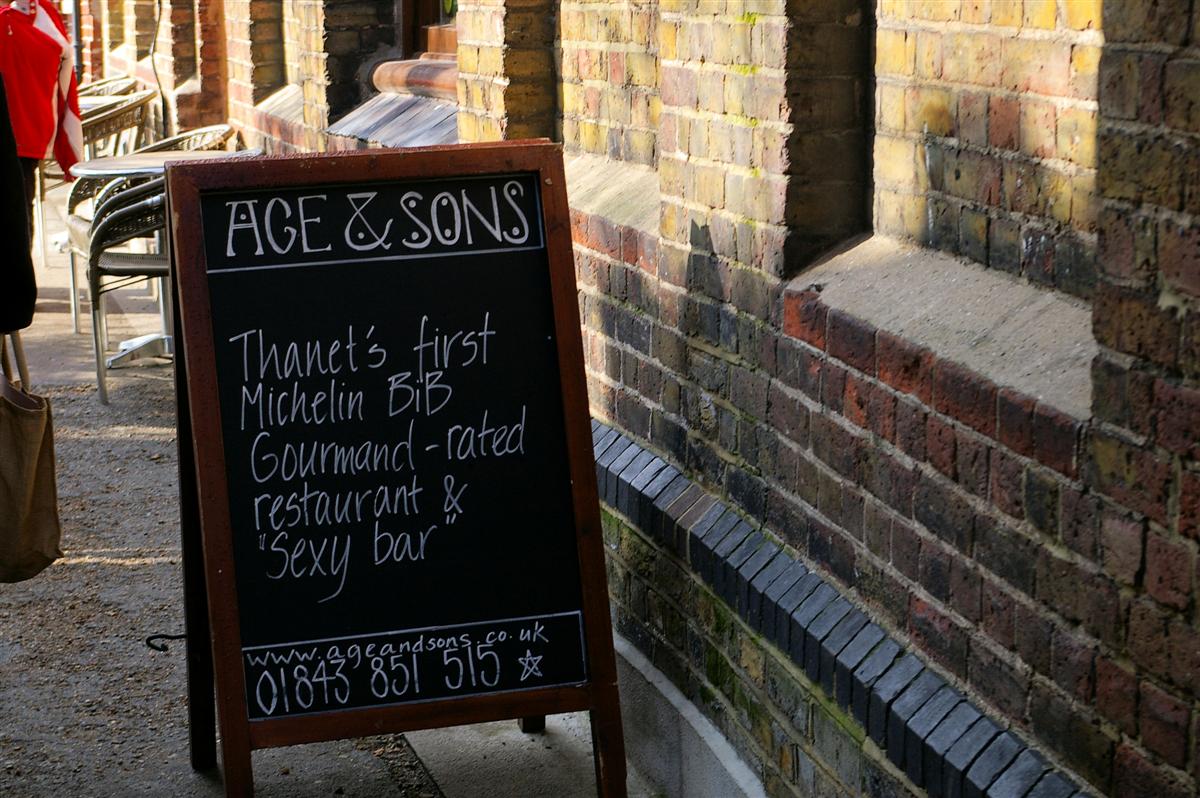 AGE & SONS
Thanet's first
Michelin BiB
Gourmand-rated
restaurant &
"Sexy bar"
www.ageandsons.co.uk
01843 851 515